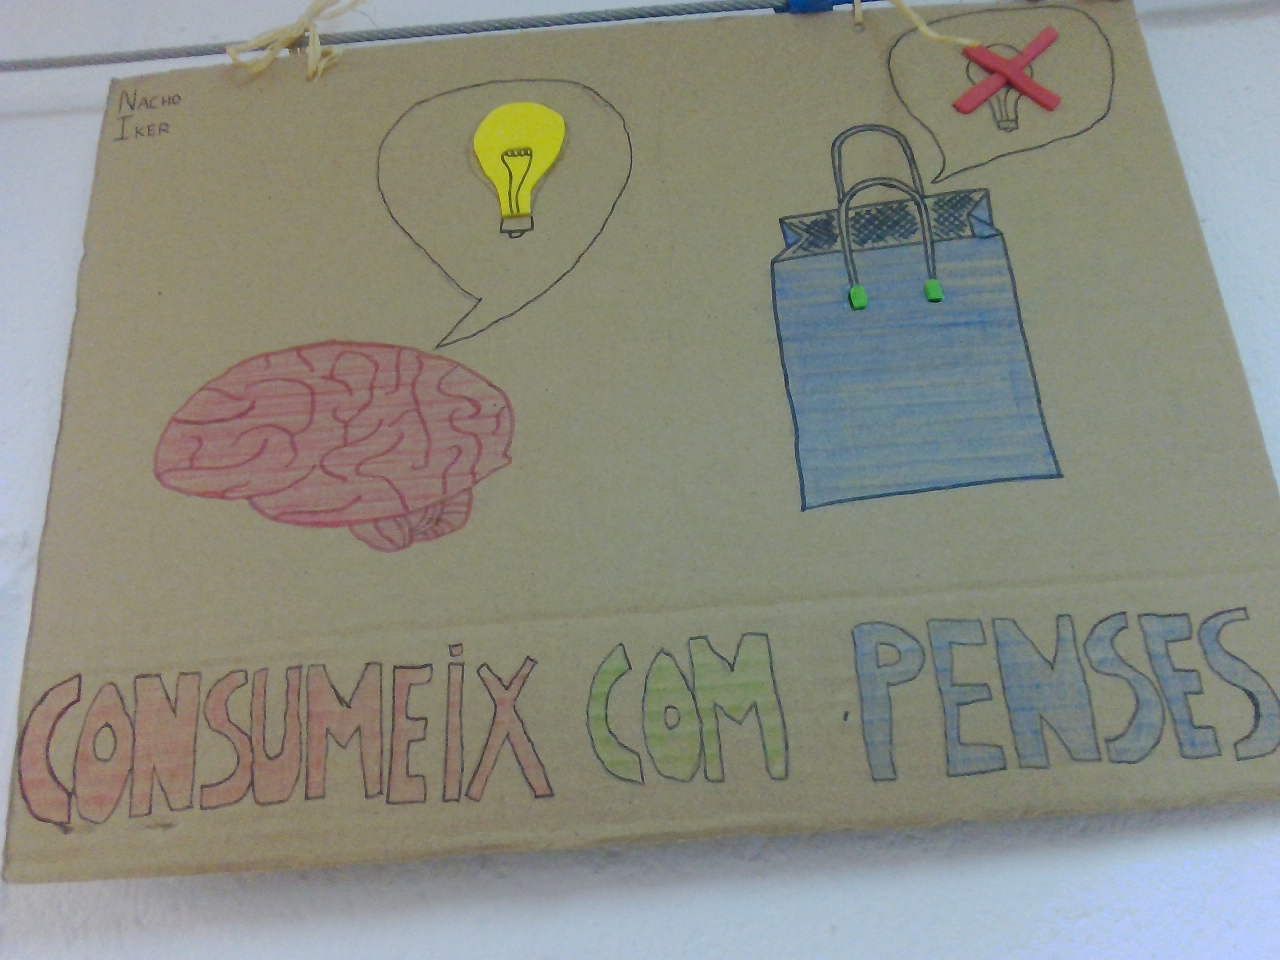 NACHO
IKER
CONSUMEiX COM PENSES